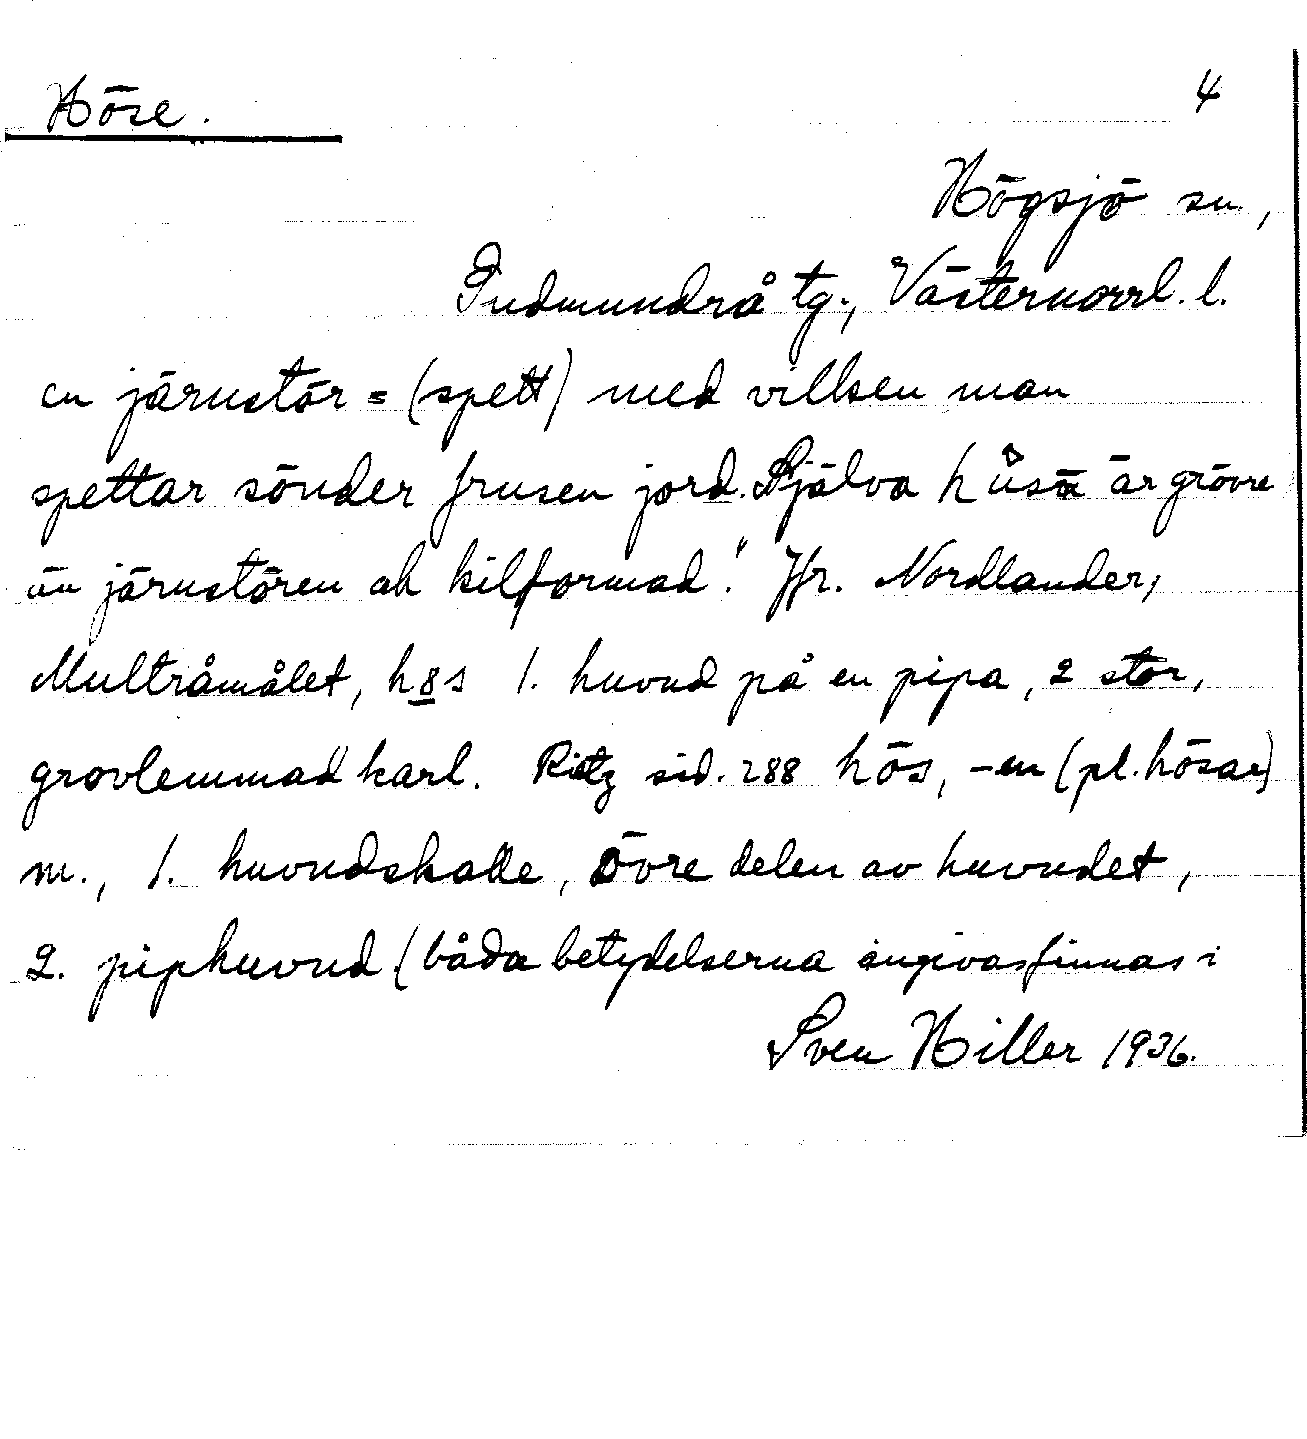 Höse.
4
Högsjö sn.,
Gudmundrå tg., Västernorrl. l.
en järnstör = (spett) med vilken man
spettar sönder frusen jord. Själva är grövre
än järnstören ak kilformad". Jfr. Nordlander,
Multråmålet, h8s 1. huvud på en pipa, 2 stor,
grovlemmad karl. Rietz sid. 288 hös, -en (pl. hösar)
m., 1. huvudskalle, övre delen av huvudet,
2. piphuvud (båda betydelserna angivas finnas i
Sven Hiller 1936.